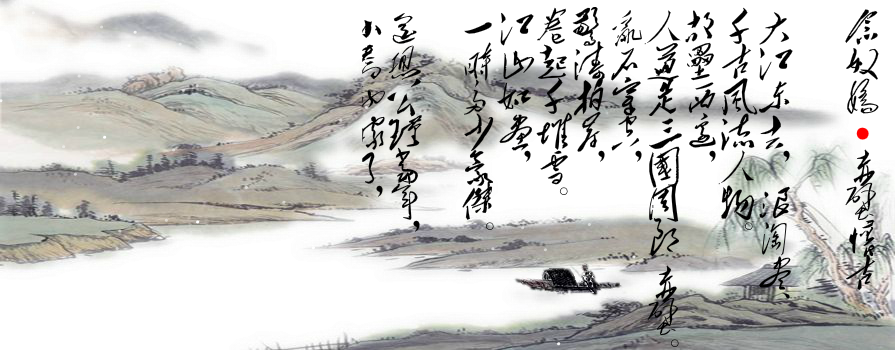 念奴娇●赤壁懷古
大江东去，浪淘尽，
千古风流人物。
故壘西边，
人道是三國周郎赤壁。
乱石穿空，
驚涛拍岸，
卷起千堆雪。
江山如画，
一時多少豪傑。
遥想公瑾当年，
小喬初嫁了，